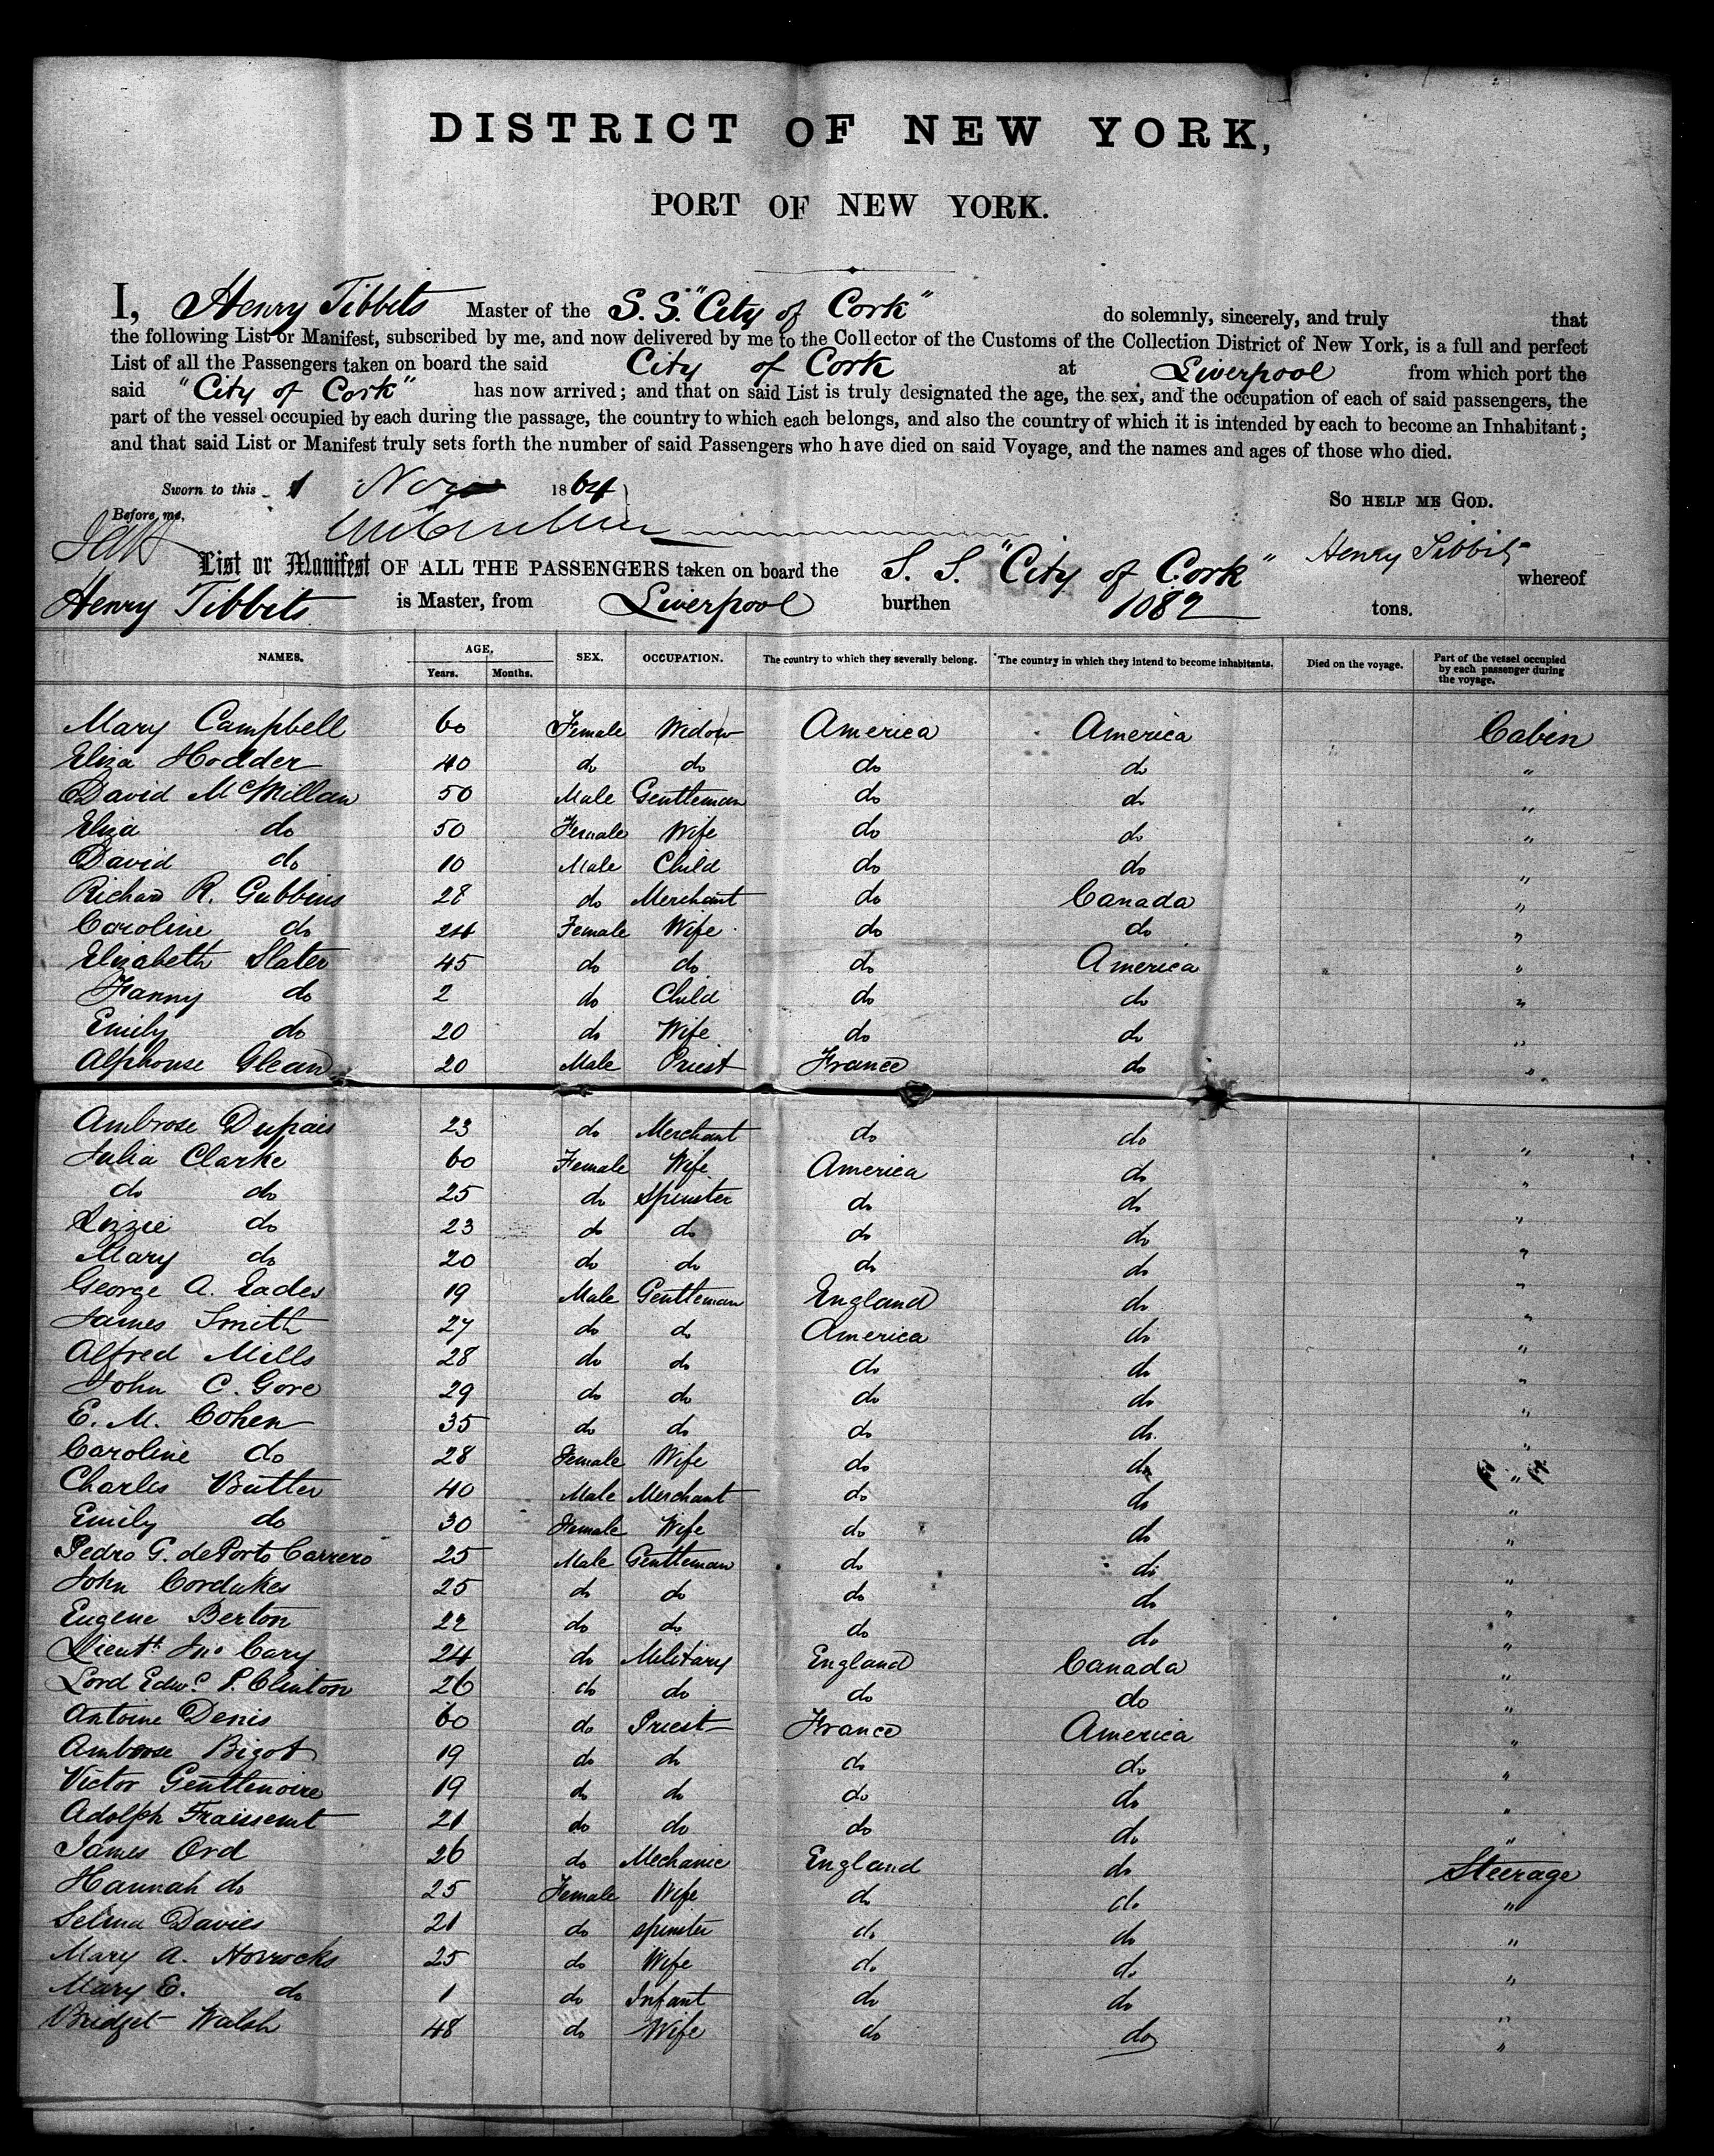 DISTRICT OF NEW YORK,
PORT OF NEW YORK.
I, Henry Tibbits Master of the S.S. "City of Cork" do solemnly, sincerely, and truly that
the following List or Manifest, subscribed by me, and now delivered by me to the Collector of the Customs of the Collection District of New York, is a full and perfect
List of all the Passengers taken on board the said City of Cork at Liverpool from which port the
said "City of Cork" has now arrived; and that on said List is truly designated the age, the sex, and the occupation of each of said passengers, the
part of the vessel occupied by each during the passage, the country to which each belongs, and also the country of which it is intended by each to become an Inhabitant;
and that said List or Manifest truly sets forth the number of said Passengers who have died on said Voyage, and the names and ages of those who died.
Sworn to this 1 Nov 1864 SO HELP ME GOD.
Before me,
Henry Tibbits
List or Manifest OF ALL THE PASSENGERS taken on board the S. S. "City of Cork" whereof
Henry Tibbits is Master, from Liverpool burthen 1082 tons.
NAMES. AGE. Years. Months. SEX. OCCUPATION. The country to which they severally belong. The country in which they intend to become inhabitants. Died on the voyage. Part of the vessel occupied by each passenger during the voyage.
Mary Campbell 60 Female Widow America America Cabin
Eliza Hodder 40 do do do do "
David McMillan 50 Male Gentleman do do "
Eliza do 50 Female Wife do do "
David do 10 Male Child do do "
Richard R. Gubbins 28 do Merchant do Canada "
Caroline do 24 Female Wife do do "
Elizabeth Slater 45 do do do America "
Fanny do 2 do Child do do "
Emily do 20 do Wife do do "
Alphonse Glean 20 Male Priest France do "
Ambrose Dupais 23 do Merchant do do "
Julia Clarke 60 Female Wife America do "
do do 25 do Spinster do do "
Lizzie do 23 do do do do "
Mary do 20 do do do do "
George A. Eades 19 Male Gentleman England do "
James Smith 27 do do America do "
Alfred Mills 28 do do do do "
John C. Gore 29 do do do do "
E. M. Cohen 35 do do do do "
Caroline do 28 Female Wife do do "
Charles Butter 40 Male Merchant do do "
Emily do 30 Female Wife do do "
Pedro G. de Porto Carrero 25 Male Gentleman do do "
John Cordukes 25 do do do do "
Eugene Berton 22 do do do do "
Lieutt. Jno Cary 24 do Military England Canada "
Lord Edwd. P. Clinton 26 do do do do "
Antoine Denis 60 do Priest France America "
Ambrose Bigot 19 do do do do "
Victor Gentlenoire 19 do do do do "
Adolph 21 do do do do "
James Ord 26 do Mechanic England do Steerage
Hannah do 25 Female Wife do do "
Selina Davies 21 do spinster do do "
Mary A. Horrocks 25 do Wife do do "
Mary E. do 1 do Infant do do "
Bridget Walsh 48 do Wife do do "